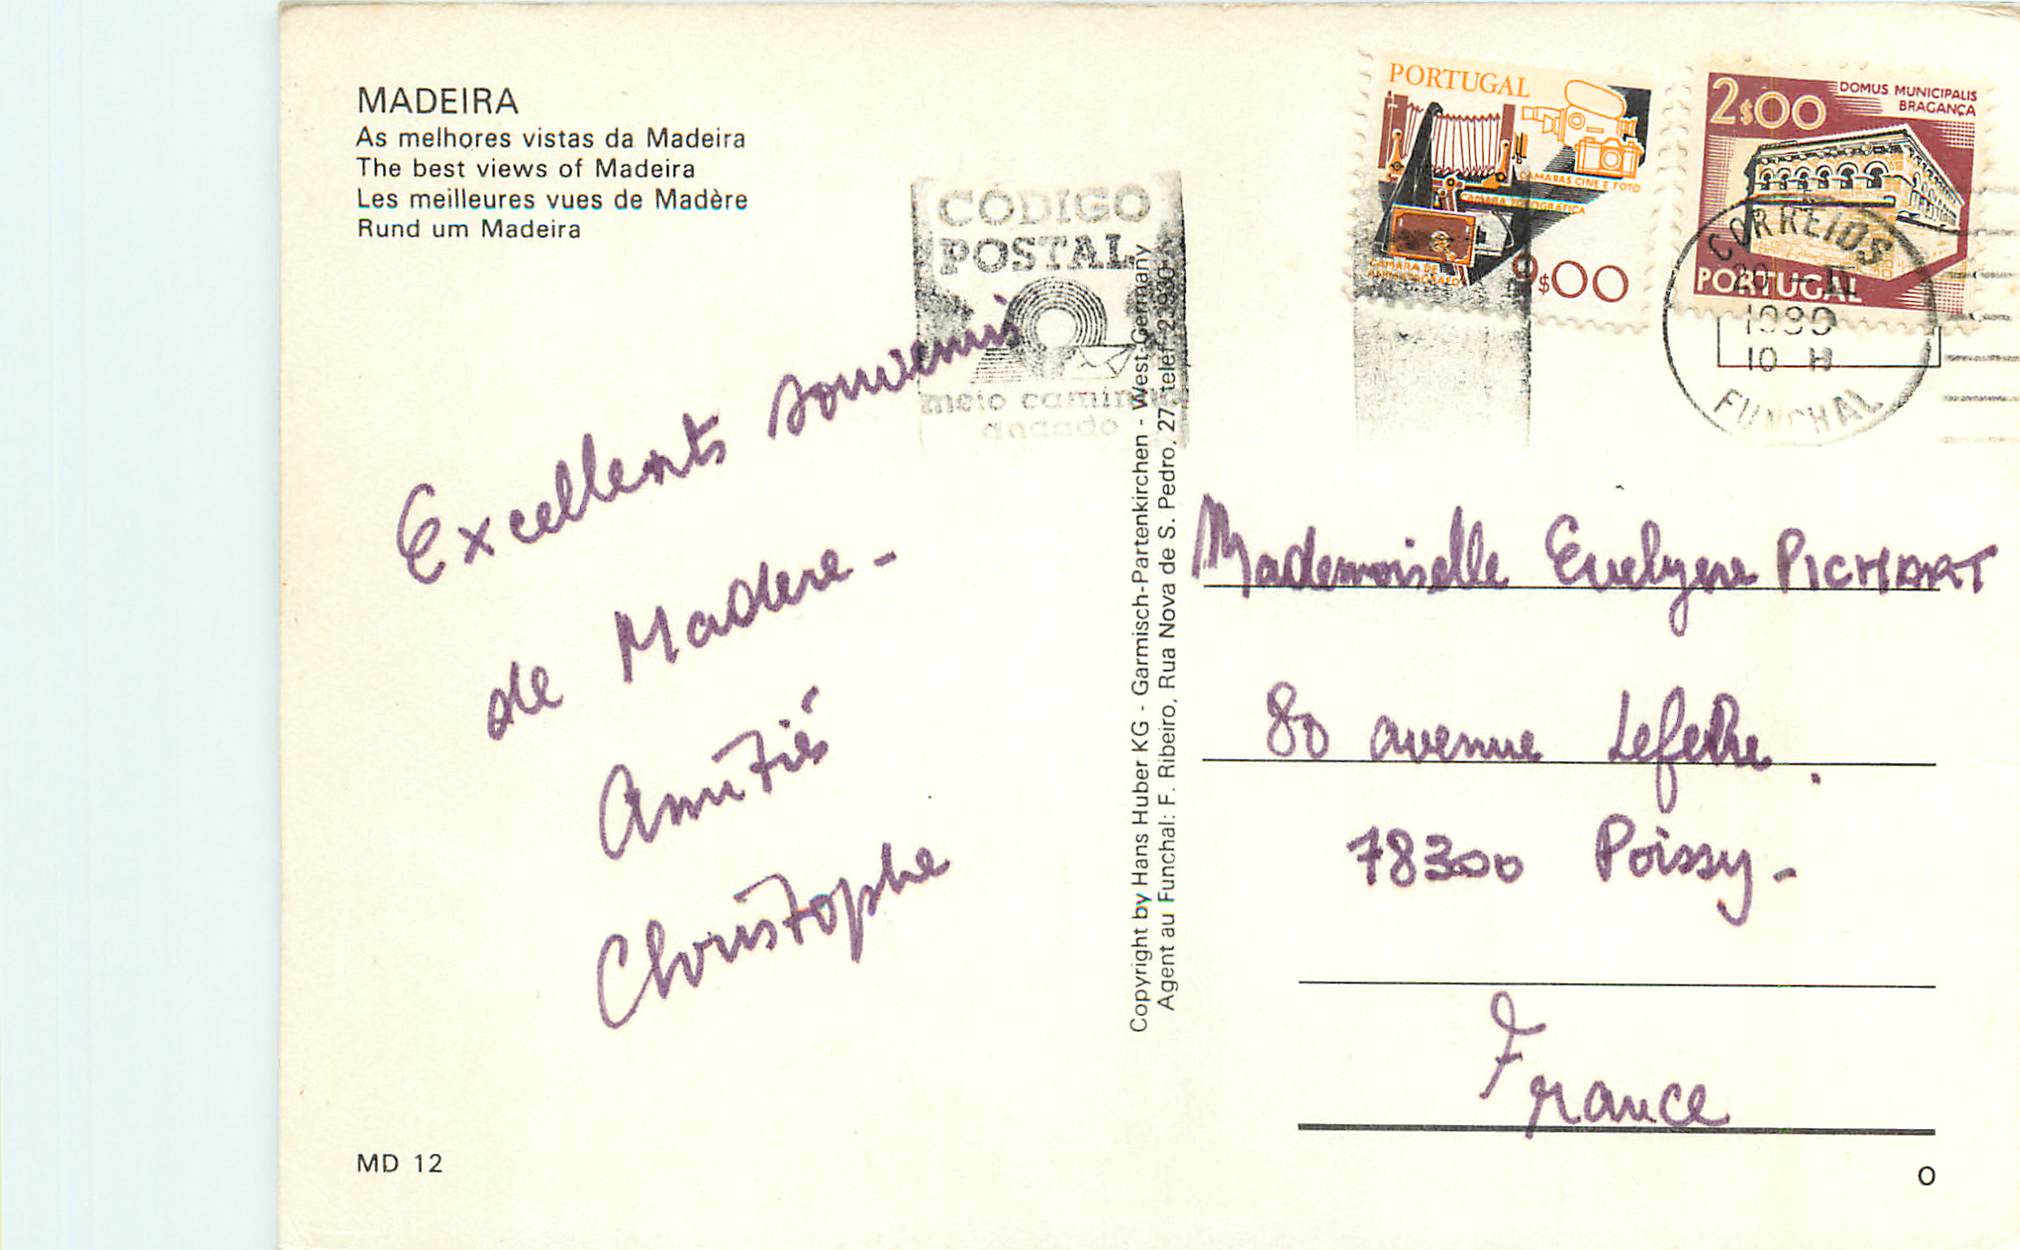 MADEIRA
As melhores vistas da Madeira
The best views of Madeira
Les meilleures vues de Madère
Rund um Madeira
Excellents souvenirs
de Madere -
Amitiés
Christophe
MD 12
CÓDIGO
POSTAL
meio caminho
andado
Copyright by Hans Huber KG - Garmisch-Partenkirchen - West-Germany
Agent au Funchal: F. Ribeiro, Rua Nova de S. Pedro, 27, telef. 23930
PORTUGAL
CÂMARAS CINE E FOTO
CÂMARA FOTOGRÁFICA
CÂMARA DE
9$00
2$00
DOMUS MUNICIPALIS
BRAGANÇA
PORTUGAL
CORREIOS
1980
10 H
FUNCHAL
Mademoiselle Evelyne PICHART
80 avenue Lefebvre.
78300 Poissy -
France
O